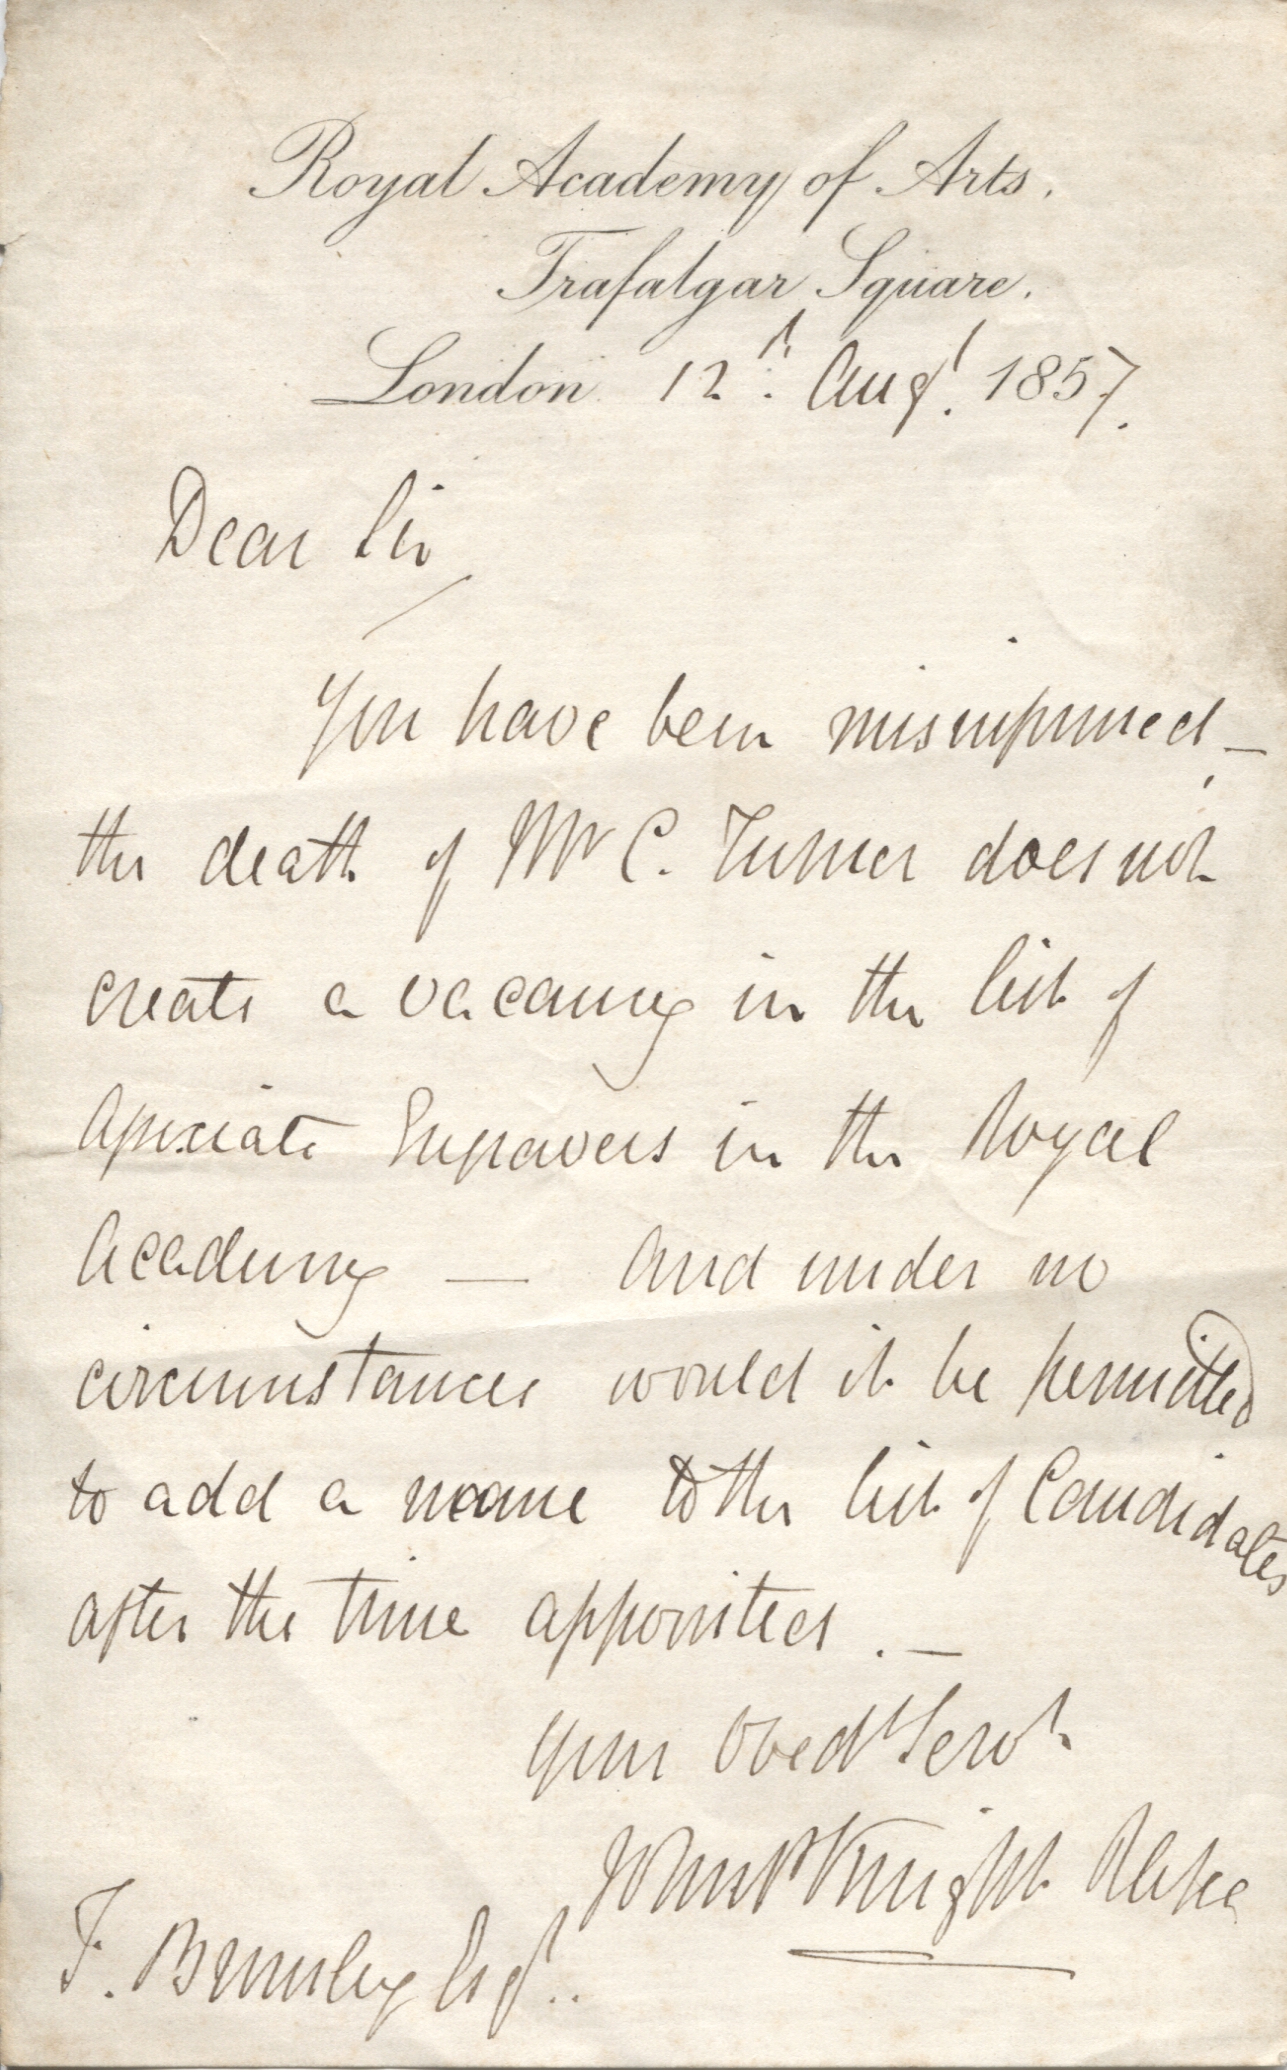 Royal Academy of Arts.
Trafalgar Square.
London 12th. Augt. 1857.
Dear Sir,
You have been misinformed, —
the death of Mr C. Turner does not
create a vacancy in the list of
Associate Engravers in the Royal
Academy — and under no
circumstances would it be permitted
to add a name to the list of Candidates
after the time appointed. —
Your Obedt Servt
John P Knight RA Sec
F. Bromley Esqr..